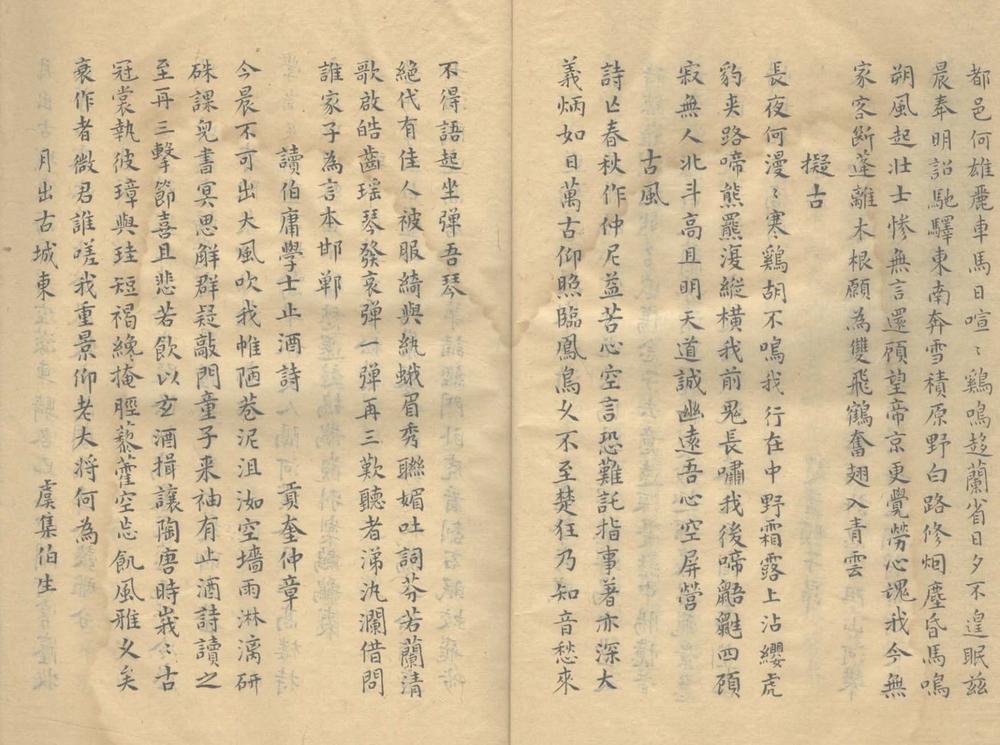 都邑何雄麗車馬日喧〻鷄鳴趍蘭省日夕不遑眠茲
晨奉明詔馳驛東南奔雪積原野白路修烟塵昏馬鳴
朔風起壯士慘無言還顧望帝京更覺勞心魂我今無
家客斷蓬離本根願為雙飛鶴奮翅入青雲
擬古
長夜何漫〻寒鷄胡不鳴我行在中野霜露上沾纓虎
豹夾路啼熊羆復縱橫我前鬼長嘯我後啼鼯鼪四顧
寂無人北斗高且明天道誠幽遠吾心空屏營
古風
詩亾春秋作仲尼益苦心空言恐難託指事著亦深大
義炳如日萬古仰照臨鳳鳥乆不至楚狂乃知音愁來
不得語起坐弹吾琴
絕代有佳人被服綺與紈蛾眉秀聯媚吐詞芬若蘭清
歌啟皓齒瑶琴發哀弹一弹再三歎聽者涕汍瀾借問
誰家子為言本邯鄲
讀伯庸學士止酒詩 貢奎仲章
今晨不可出大風吹我帷陋巷泥沮洳空墻雨淋漓研
硃課兒書冥思解群疑敲門童子来袖有止酒詩讀之
至再三擊節喜且悲若飲以玄酒揖讓陶唐時峩〻古
冠裳執彼璋與珪短褐纔掩脛藜藿空忘飢風雅乆矣
衰作者微君誰嗟我重景仰老大将何為
月出古城東 虞集伯生